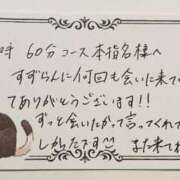 時 60分コース本指名様へ
すずらんに何回も会いに来て
てありがとうございます!!
ずっと会いたかって言ってくれて
しかたです
また来れ